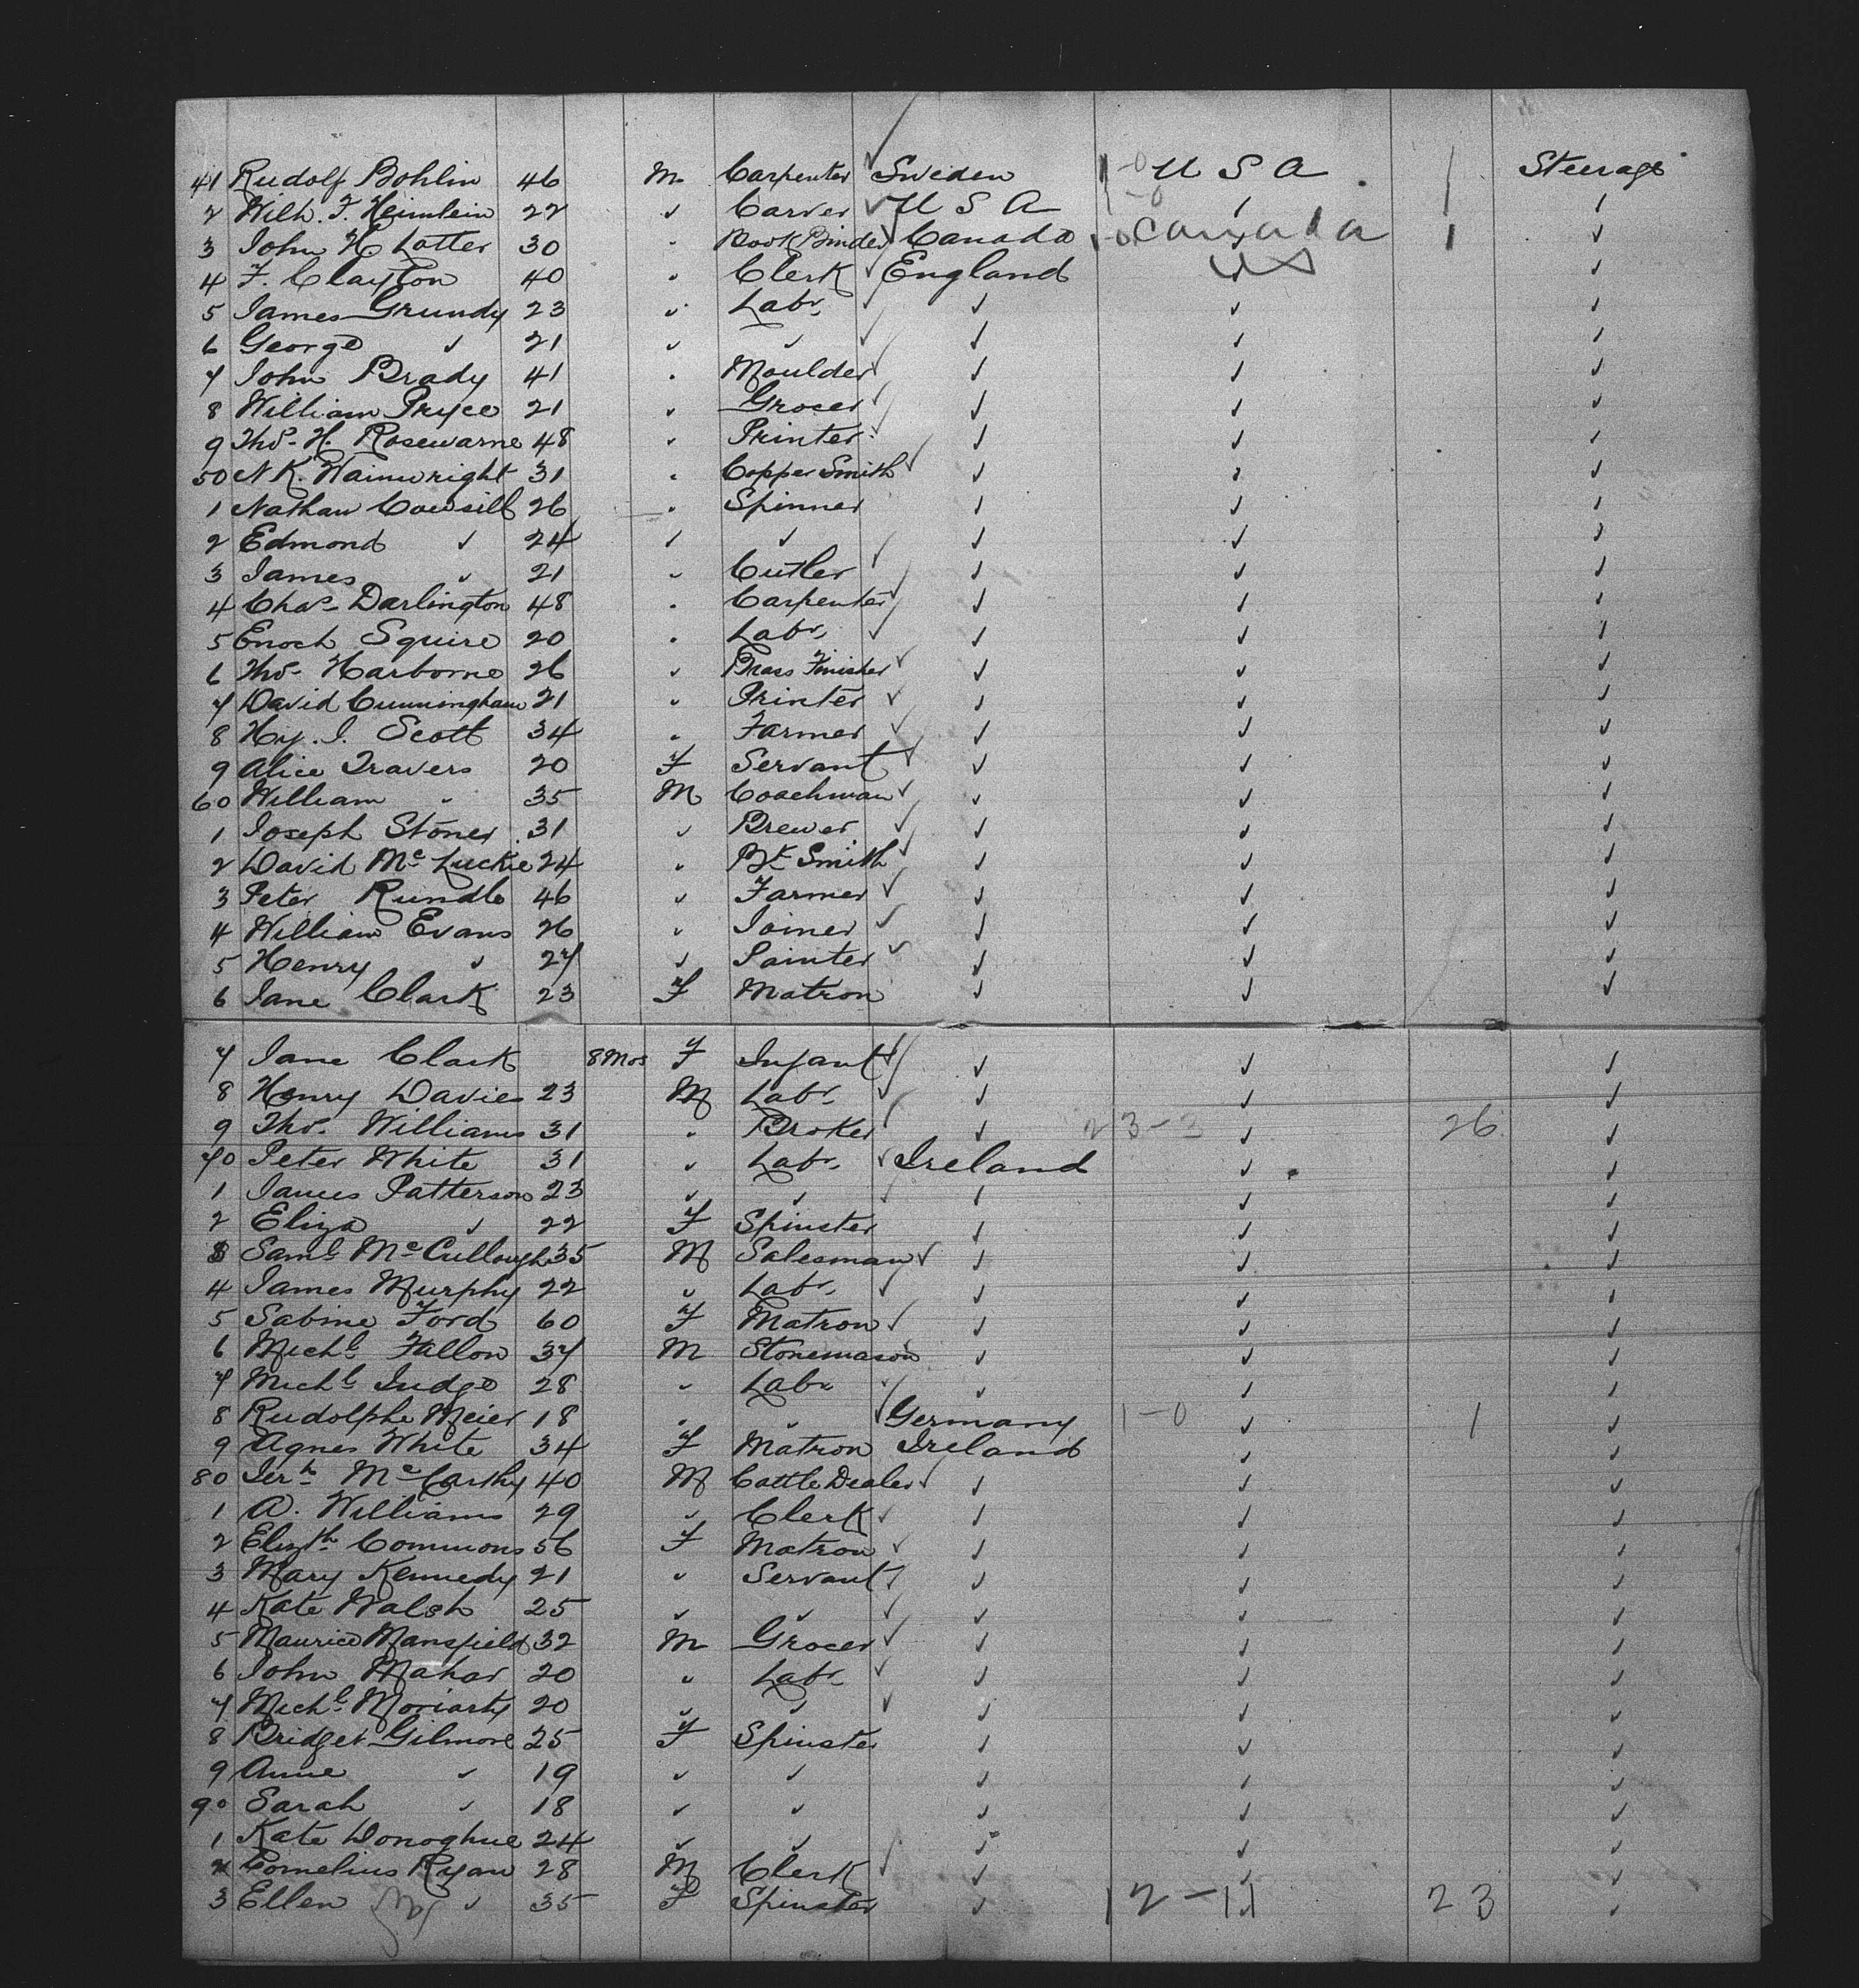 41 Rudolf Bohlin 46 M Carpenter Sweden 1-0 U S A 1 Steerage
2 Wilh. F. Heimlein 22 ✓ Carver U S A 1-0 ✓ ✓
3 John H Latter 30 " Book Binder Canada 1-0 Canada 1 ✓
4 F. Clayton 40 " Clerk England US ✓
5 James Grundy 23 ✓ Labr ✓ ✓ ✓
6 George ✓ 21 ✓ ✓ ✓ ✓ ✓
7 John Brady 41 " Moulder ✓ ✓ ✓
8 William Pryce 21 ✓ Grocer ✓ ✓ ✓
9 Thos. H. Rosewarne 48 " Printer ✓ ✓ ✓
50 N K. Wainwright 31 " Copper Smith ✓ ✓ ✓
1 Nathan Cowsill 26 " Spinner ✓ ✓ ✓
2 Edmond ✓ 24 ✓ ✓ ✓ ✓ ✓
3 James ✓ 21 ✓ Cutler ✓ ✓ ✓
4 Chas. Darlington 48 " Carpenter ✓ ✓ ✓
5 Enoch Squire 20 " Labr. ✓ ✓ ✓
6 Thos. Harborne 26 ✓ Brass Finisher ✓ ✓ ✓
7 David Cunningham 21 " Printer ✓ ✓ ✓
8 Hy. J. Scott 34 " Farmer ✓ ✓ ✓
9 Alice Travers 20 F Servant ✓ ✓ ✓
60 William " 35 M Coachman ✓ ✓ ✓
1 Joseph Stoner 31 ✓ Brewer ✓ ✓ ✓
2 David Mc Luckie 24 " Bk Smith ✓ ✓ ✓
3 Peter Rundle 46 ✓ Farmer ✓ ✓ ✓
4 William Evans 26 " Joiner ✓ ✓ ✓
5 Henry ✓ 27 ✓ Painter ✓ ✓ ✓
6 Jane Clark 23 F Matron ✓ ✓ ✓
7 Jane Clark 8 Mos F Infant ✓ ✓ ✓
8 Henry Davies 23 M Labr. ✓ ✓ ✓
9 Thos. Williams 31 " Broker ✓ 23-3 ✓ 26 ✓
70 Peter White 31 ✓ Labr. Ireland ✓ ✓
1 James Patterson 23 ✓ ✓ ✓ ✓ ✓
2 Eliza ✓ 22 F Spinster ✓ ✓ ✓
3 Saml. McCullough 35 M Salesman ✓ ✓ ✓
4 James Murphy 22 ✓ Labr. ✓ ✓ ✓
5 Sabine Ford 60 F Matron ✓ ✓ ✓
6 Michl. Fallon 37 M Stonemason ✓ ✓ ✓
7 Michl Judge 28 " Labr ✓ ✓ ✓
8 Rudolphe Meier 18 " ✓ Germany 1-0 ✓ 1 ✓
9 Agnes White 34 F Matron Ireland ✓ ✓
80 Jerh. McCarthy 40 M Cattle Dealer ✓ ✓ ✓
1 A. Williams 29 ✓ Clerk ✓ ✓ ✓
2 Elizth Commons 56 F Matron ✓ ✓ ✓
3 Mary Kennedy 21 ✓ Servant ✓ ✓ ✓
4 Kate Walsh 25 ✓ ✓ ✓ ✓ ✓
5 Maurice Mansfield 32 M Grocer ✓ ✓ ✓
6 John Mahar 20 ✓ Labr. ✓ ✓ ✓
7 Michl. Moriarty 20 ✓ ✓ ✓ ✓ ✓
8 Bridget Gilmore 25 F Spinster ✓ ✓ ✓
9 Anne ✓ 19 ✓ ✓ ✓ ✓ ✓
90 Sarah ✓ 18 ✓ ✓ ✓ ✓ ✓
1 Kate Donoghue 24 ✓ ✓ ✓ ✓ ✓
2 Cornelius Ryan 28 M Clerk ✓ ✓ ✓
3 Ellen ✓ 35 F Spinster ✓ 12-11 ✓ 23 ✓